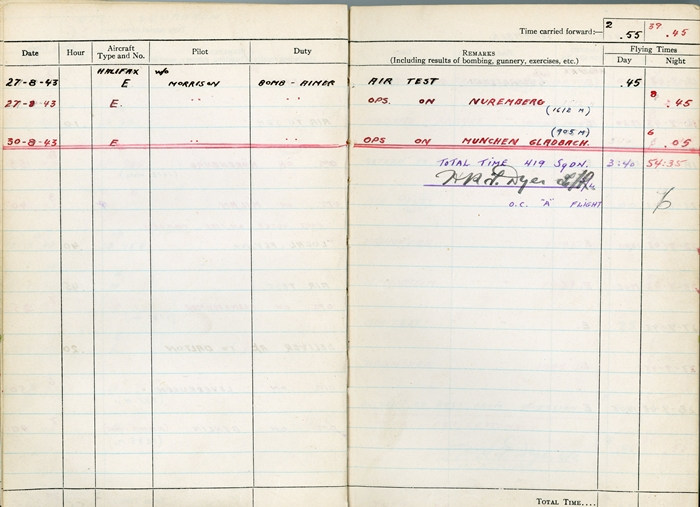 Time carried forward:— 2 .55 39 .45
Date Hour Aircraft Type and No. Pilot Duty REMARKS (Including results of bombing, gunnery, exercises, etc.) Flying Times Day Night
HALIFAX W/O
27-8-43 E MORRISON BOMB-AIMER AIR TEST .45
27-8-43 E. " " OPS. ON NUREMBERG (1612 M) 8 .45
30-8-43 E " " OPS ON MUNCHEN GLADBACH. (905 M) 6 .05
TOTAL TIME 419 SQDN. 3:40 54:35
Dyer
O.C. "A" FLIGHT
TOTAL TIME....